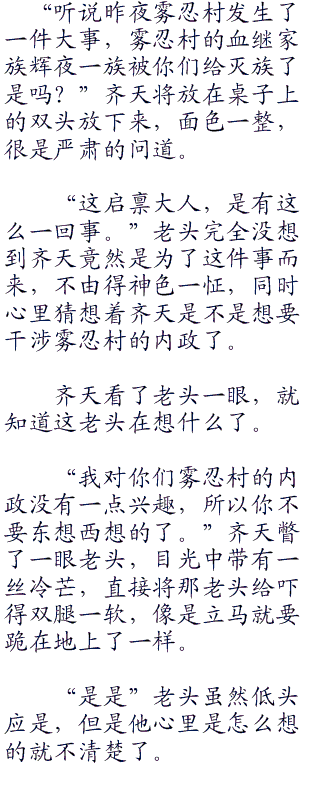 “听说昨夜雾忍村发生了
一件大事，雾忍村的血继家
族辉夜一族被你们给灭族了
是吗？”齐天将放在桌子上
的双头放下来，面色一整，
很是严肃的问道。
“这启禀大人，是有这
么一回事。”老头完全没想
到齐天竟然是为了这件事而
来，不由得神色一怔，同时
心里猜想着齐天是不是想要
干涉雾忍村的内政了。
齐天看了老头一眼，就
知道这老头在想什么了。
“我对你们雾忍村的内
政没有一点兴趣，所以你不
要东想西想的了。”齐天瞥
了一眼老头，目光中带有一
丝冷芒，直接将那老头给吓
得双腿一软，像是立马就要
跪在地上了一样。
“是是”老头虽然低头
应是，但是他心里是怎么想
的就不清楚了。